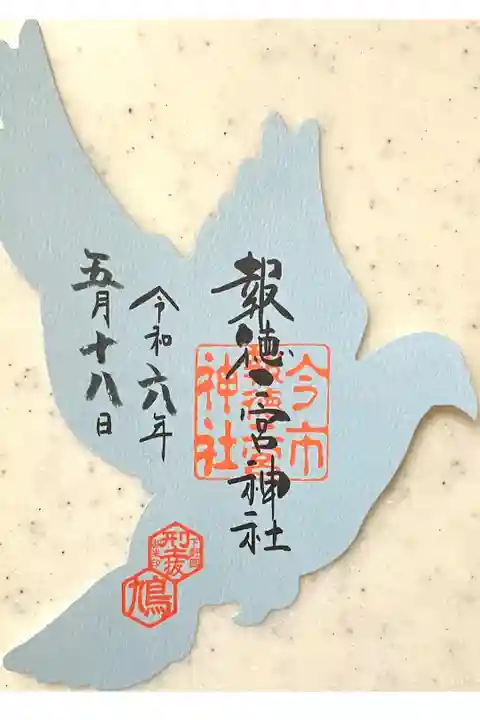 報徳二宮神社
今市
報徳二宮
神社
令和六年
五月十八日
型抜
鳩